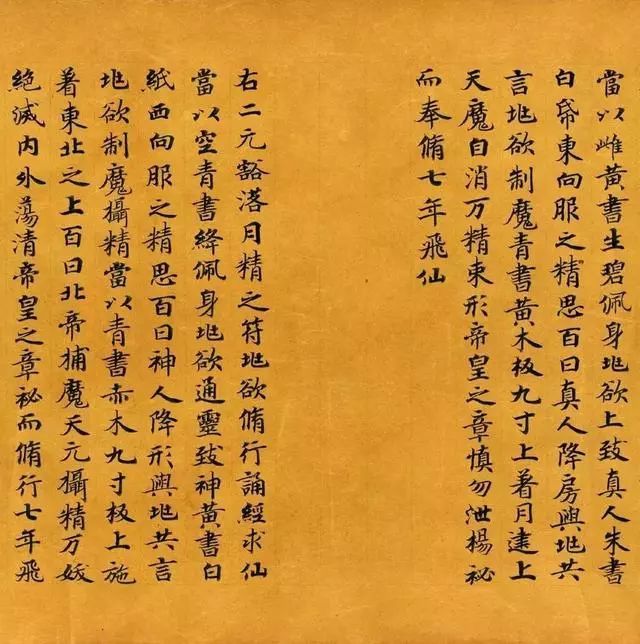 當以雌黃書生碧佩身兆欲上致真人朱書
白帋東向服之精思百日真人降房與兆共
言兆欲制魔青書黃木板九寸上著月建上
天魔自消万精束形帝皇之章慎勿泄楊祕
而奉脩七年飛仙
右二元豁落月精之符兆欲脩行誦經求仙
當以空青書絳佩身兆欲通靈致神黃書白
紙西向服之精思百日神人降形與兆共言
兆欲制魔攝精當以青書赤木九寸板上施
著東北之上百日北帝捕魔天元攝精万妖
絕滅内外蕩清帝皇之章祕而脩行七年飛